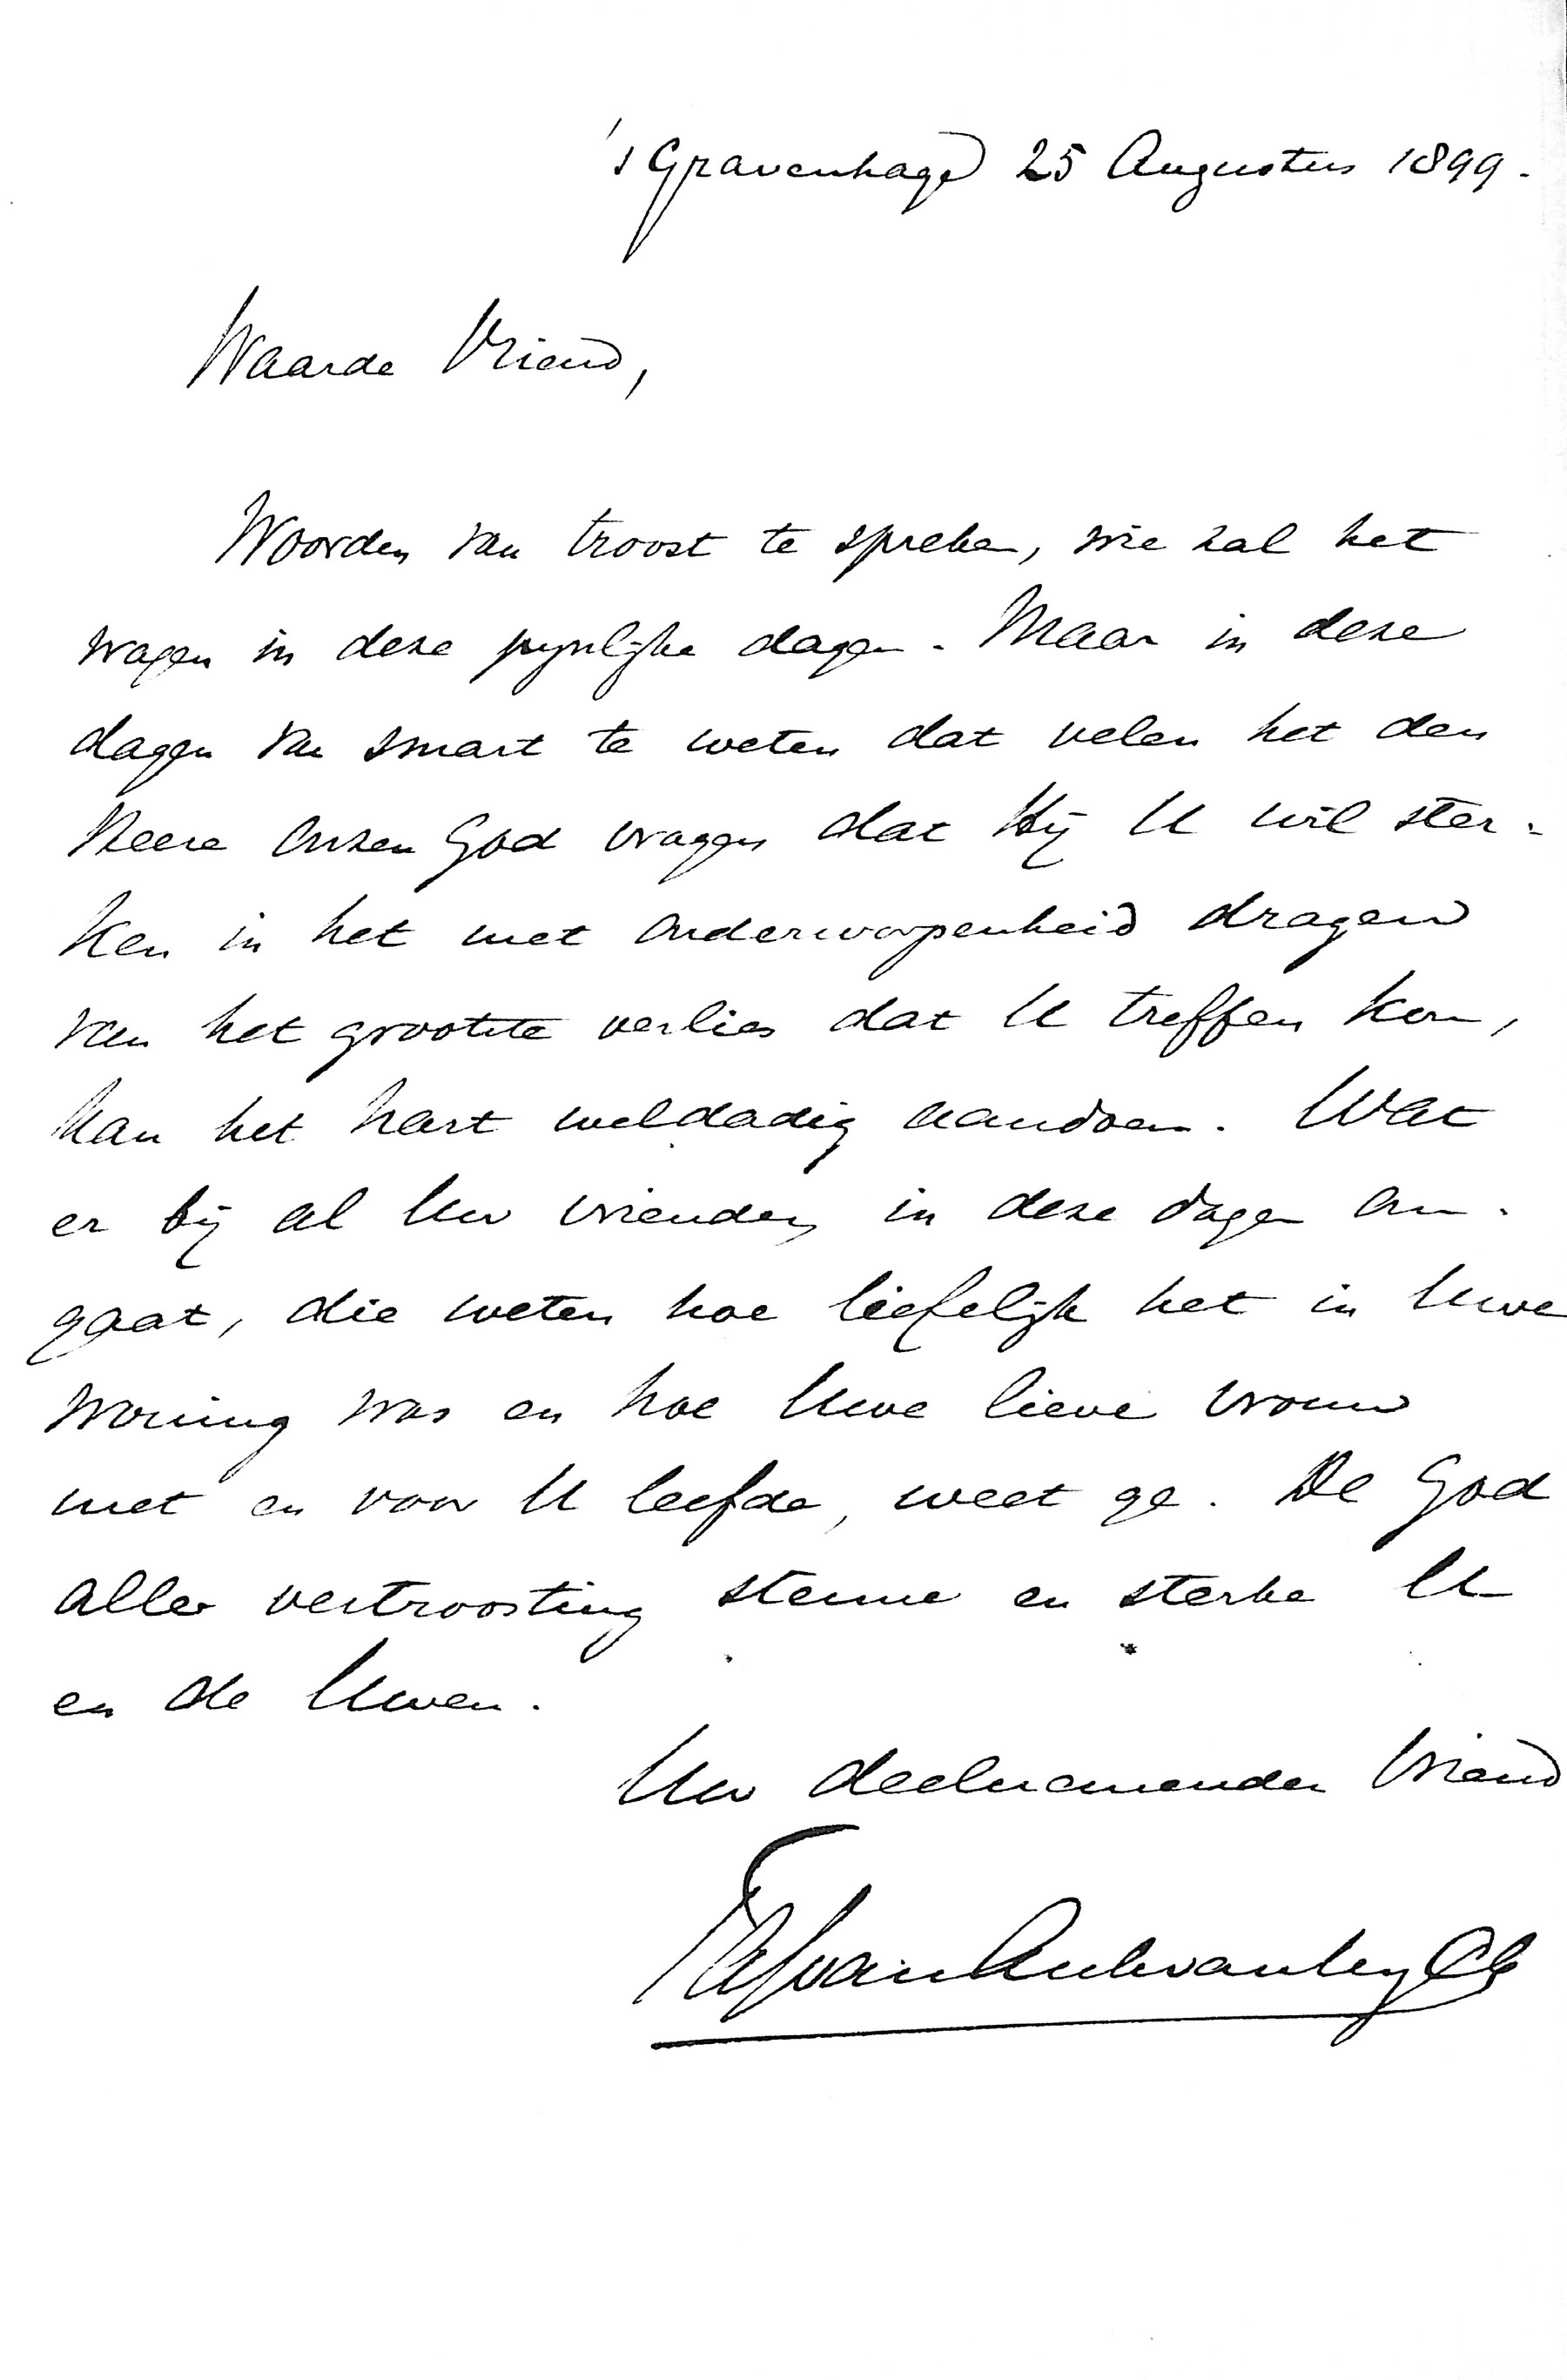 's Gravenhage 25 Augustus 1899.
Waarde Vriend,
Woorden van troost te spreken, wie zal het
wagen in deze pijnlijke dagen. Maar in deze
dagen van smart te weten dat velen het den
Heere onzen God vragen dat Hij U wil ster-
ken in het met onderworpenheid dragen
van het grootste verlies dat U treffen kon,
kan het hart weldadig aandoen. Wat
er bij al Uw vrienden in deze dagen om-
gaat, die weten hoe liefelijk het in Uwe
woning was en hoe Uwe lieve vrouw
met en voor U leefde, weet ge. De God
aller vertroosting steune en sterke U
en de Uwen.
Uw deelnemenden Vriend